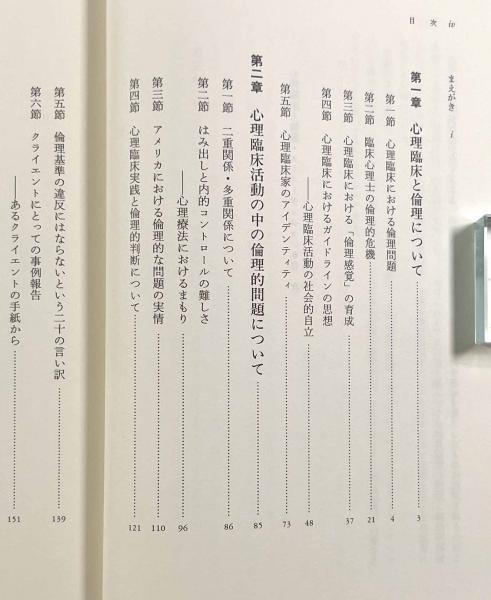 目次 iv
まえがき i
第一章 心理臨床と倫理について……3
第一節 心理臨床における倫理問題……4
第二節 臨床心理士の倫理的危機……21
第三節 心理臨床における「倫理感覚」の育成……37
第四節 心理臨床におけるガイドラインの思想
——心理臨床活動の社会的自立……48
第五節 心理臨床家のアイデンティティ……73
第二章 心理臨床活動の中の倫理的問題について……85
第一節 二重関係・多重関係について……86
第二節 はみ出しと内的コントロールの難しさ
——心理療法におけるまもり……96
第三節 アメリカにおける倫理的な問題の実情……110
第四節 心理臨床実践と倫理的判断について……121
第五節 倫理基準の違反にはならないという二十の言い訳……139
第六節 クライエントにとっての事例報告
あるクライエントの手紙から……151